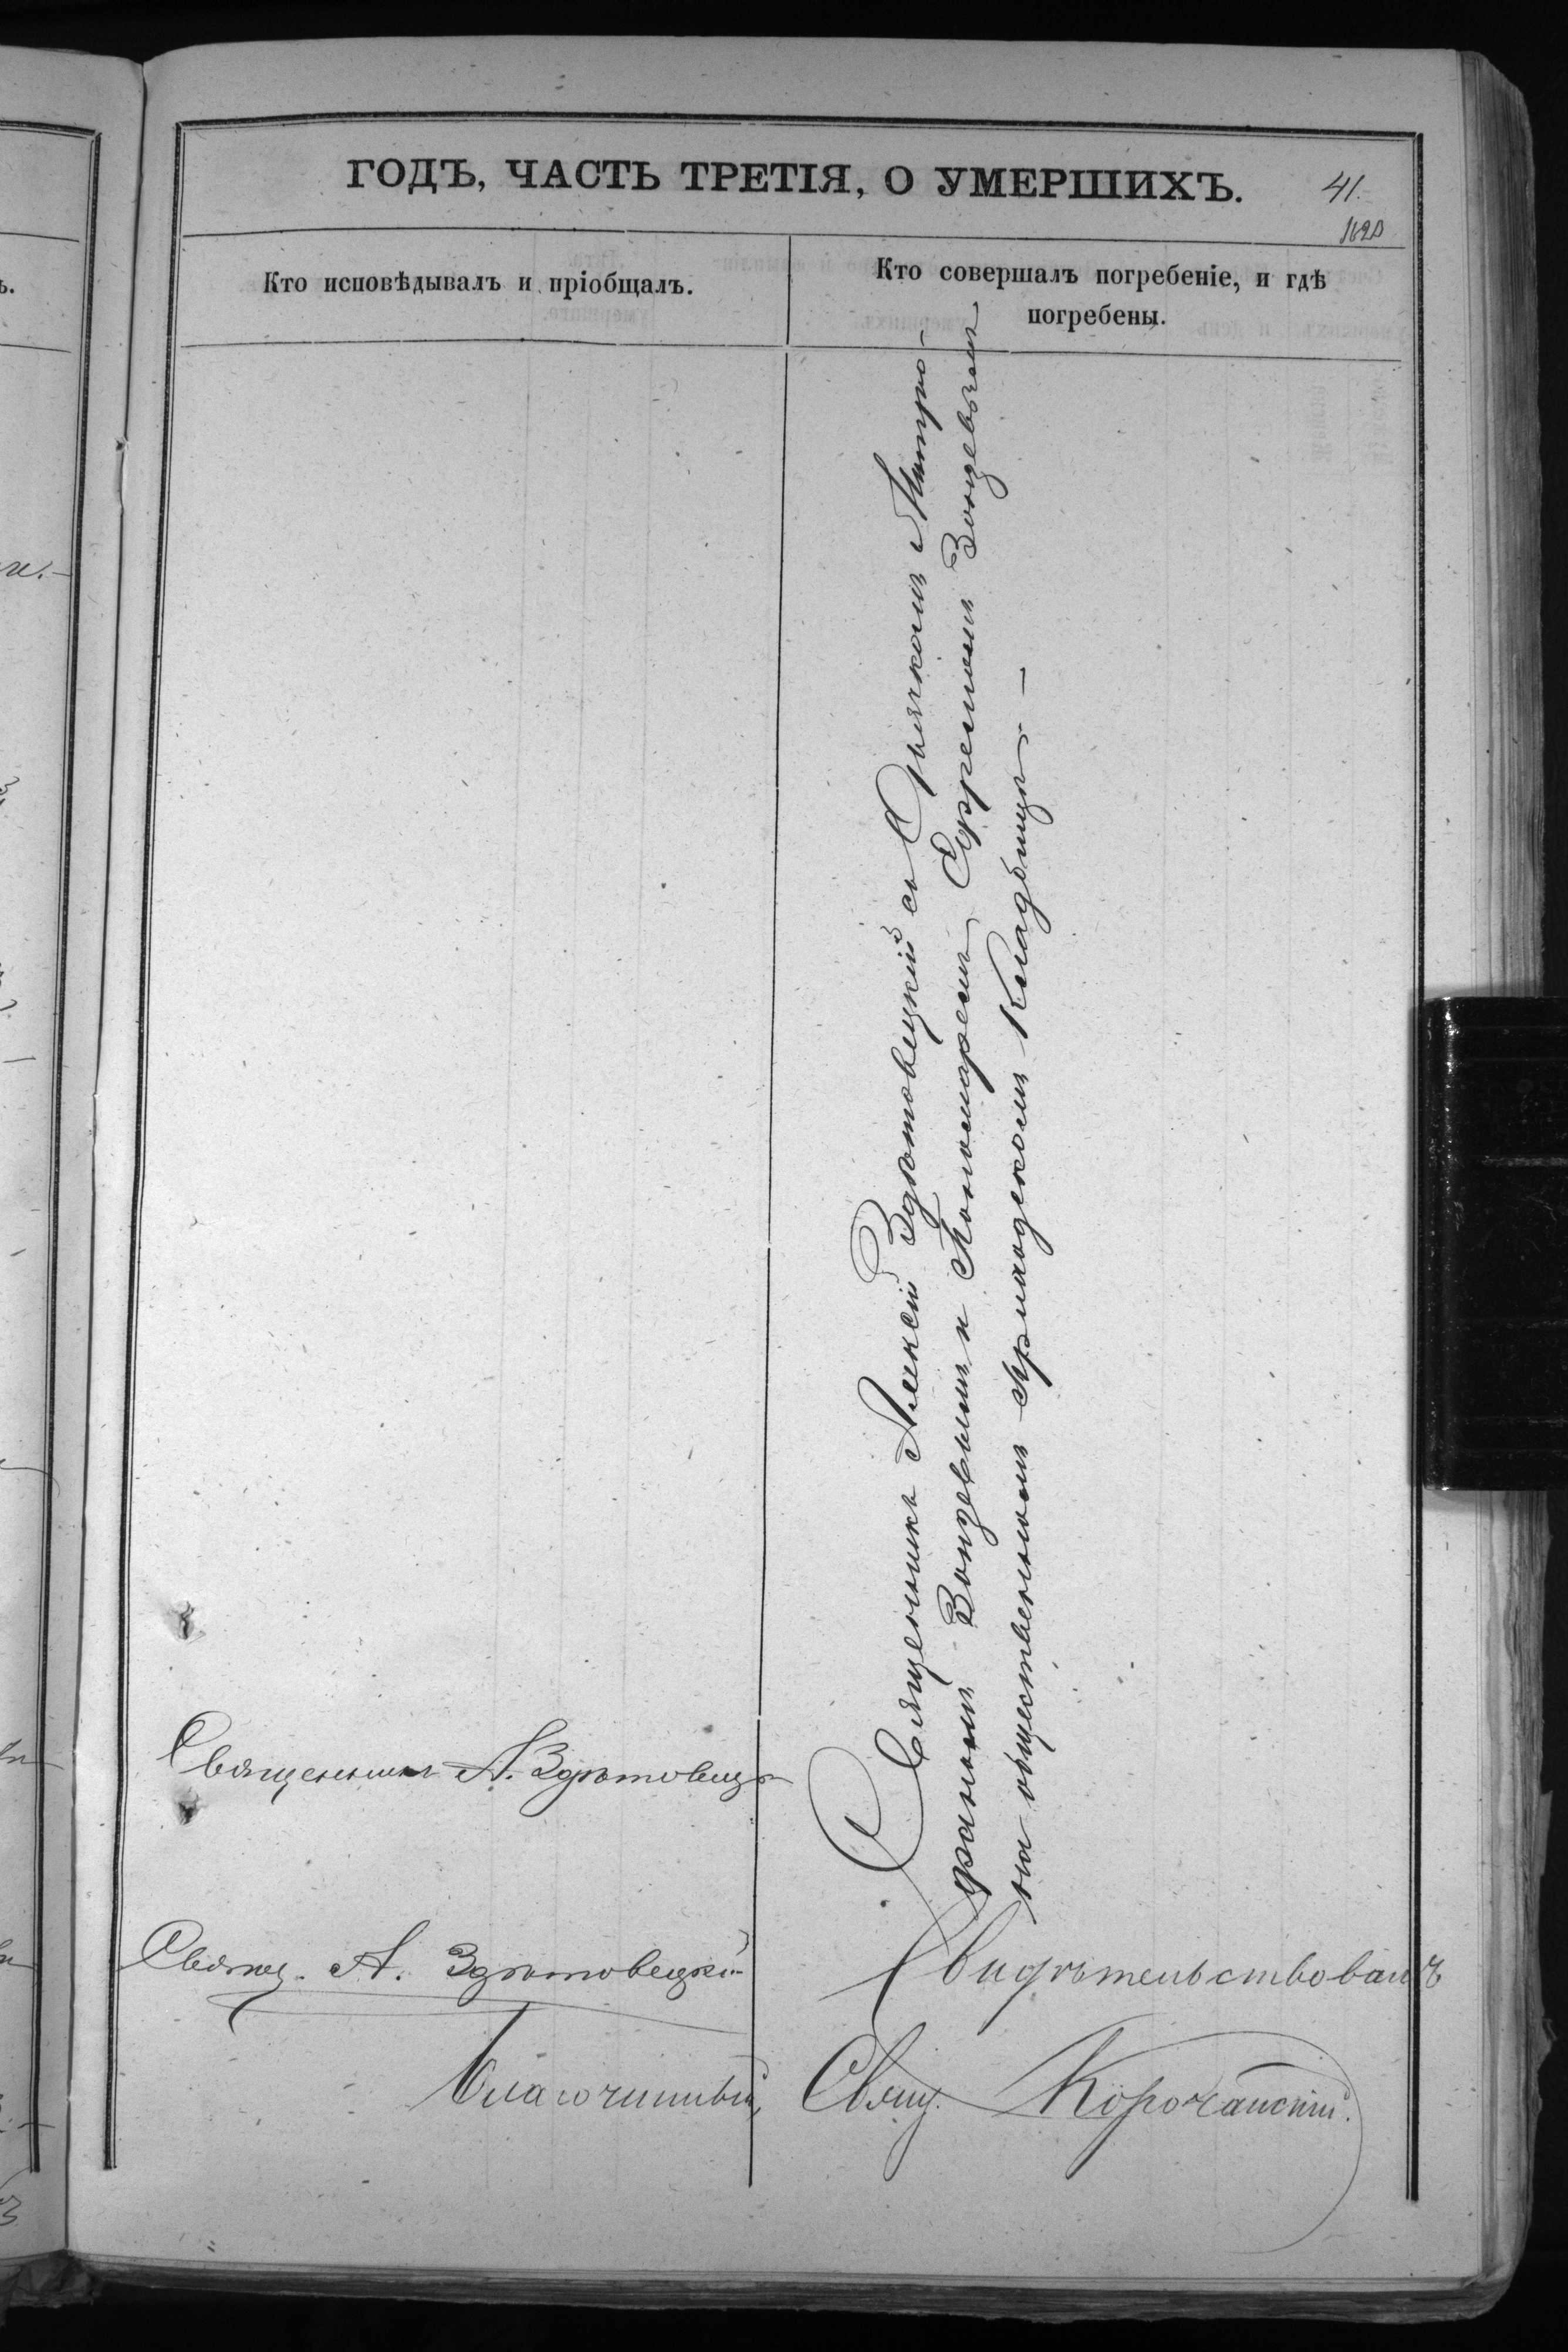 ГОДЪ, ЧАСТЬ ТРЕТІЯ, О УМЕРШИХЪ.
41.
Кто исповѣдывалъ и пріобщалъ.
Кто совершалъ погребеніе, и гдѣ
погребены.
Священникъ Алексій Здѣтовецкій съ Дьячкомъ Митро-
фаномъ Войцевымъ и Пономаремъ Ефремомъ Войцевымъ
на общественномъ приходскомъ кладбищѣ. —
Священникъ А. Здѣтовецкій
Священ. А. Здѣтовецкій
Свидѣтельствовалъ
Благочинный, Свящ. Корочанскій.